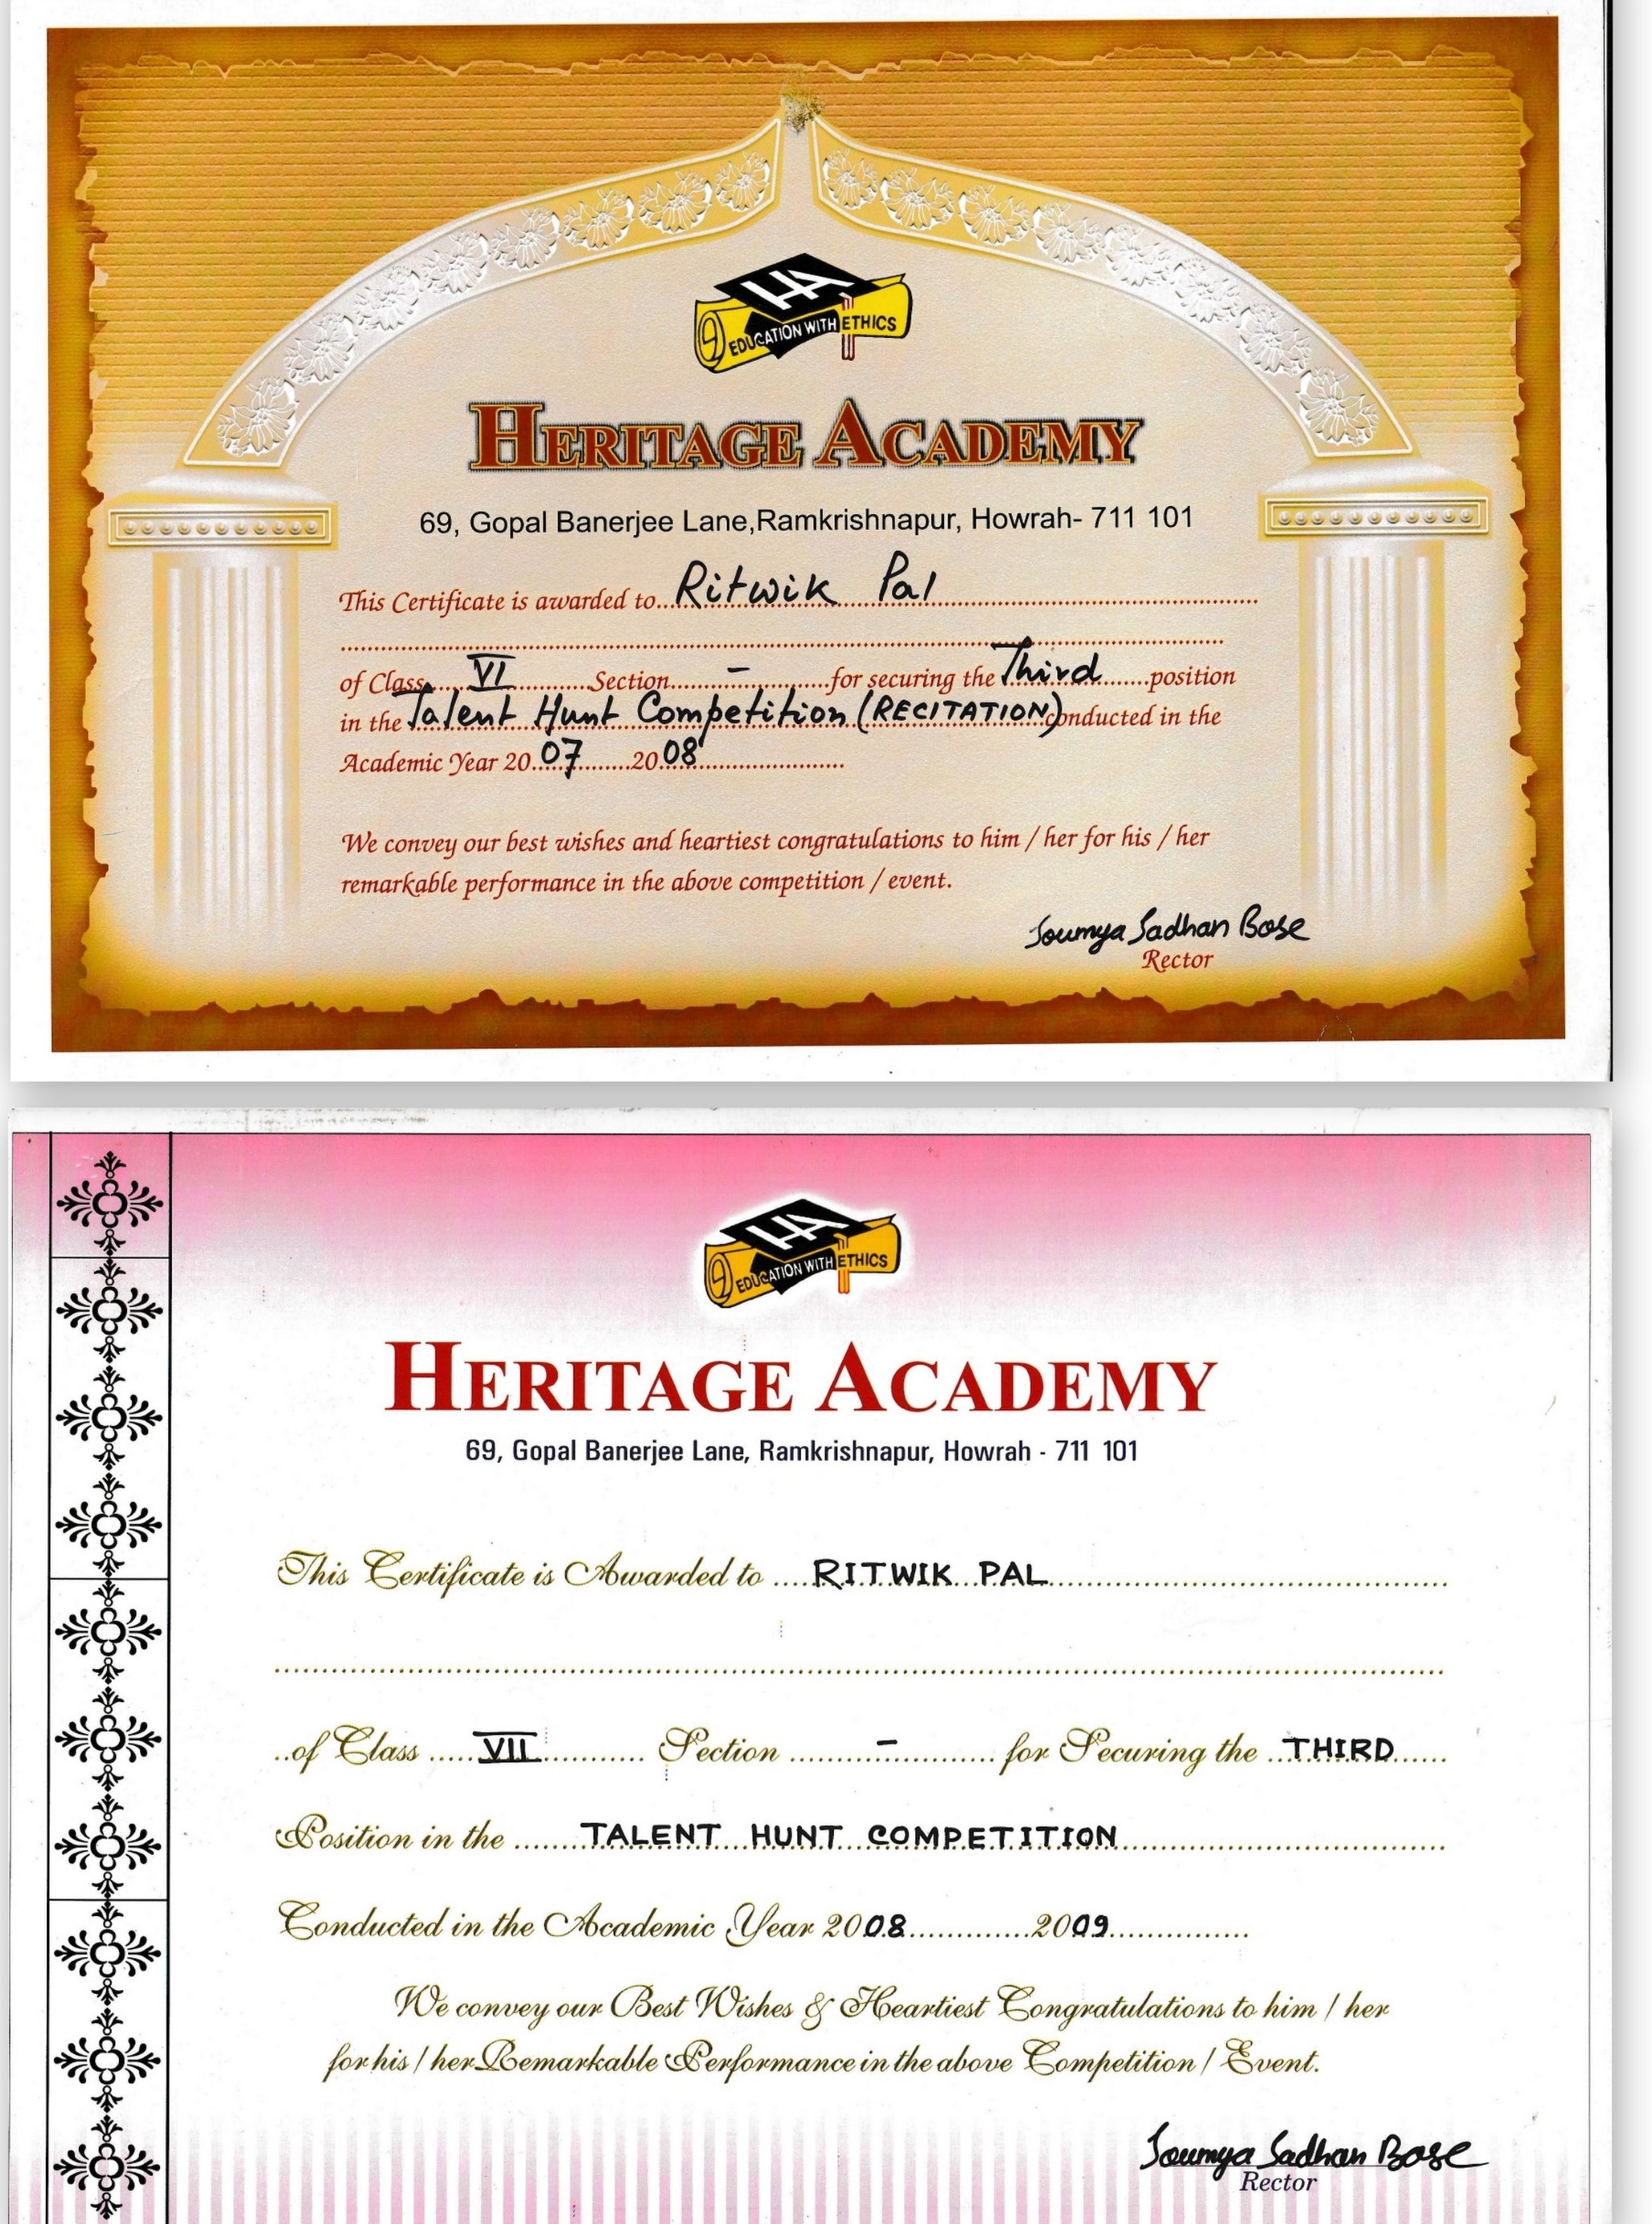 HA
EDUCATION WITH ETHICS
HERITAGE ACADEMY
69, Gopal Banerjee Lane,Ramkrishnapur, Howrah- 711 101
This Certificate is awarded to Ritwik Pal
of Class VI Section - for securing the Third position
in the Talent Hunt Competition (RECITATION) conducted in the
Academic Year 2007 2008
We convey our best wishes and heartiest congratulations to him / her for his / her
remarkable performance in the above competition / event.
Soumya Sadhan Bose
Rector
HA
EDUCATION WITH ETHICS
HERITAGE ACADEMY
69, Gopal Banerjee Lane, Ramkrishnapur, Howrah - 711 101
This Certificate is Awarded to RITWIK PAL
of Class VII Section - for Securing the THIRD
Position in the TALENT HUNT COMPETITION
Conducted in the Academic Year 2008 2009
We convey our Best Wishes & Heartiest Congratulations to him / her
for his / her Remarkable Performance in the above Competition / Event.
Soumya Sadhan Bose
Rector